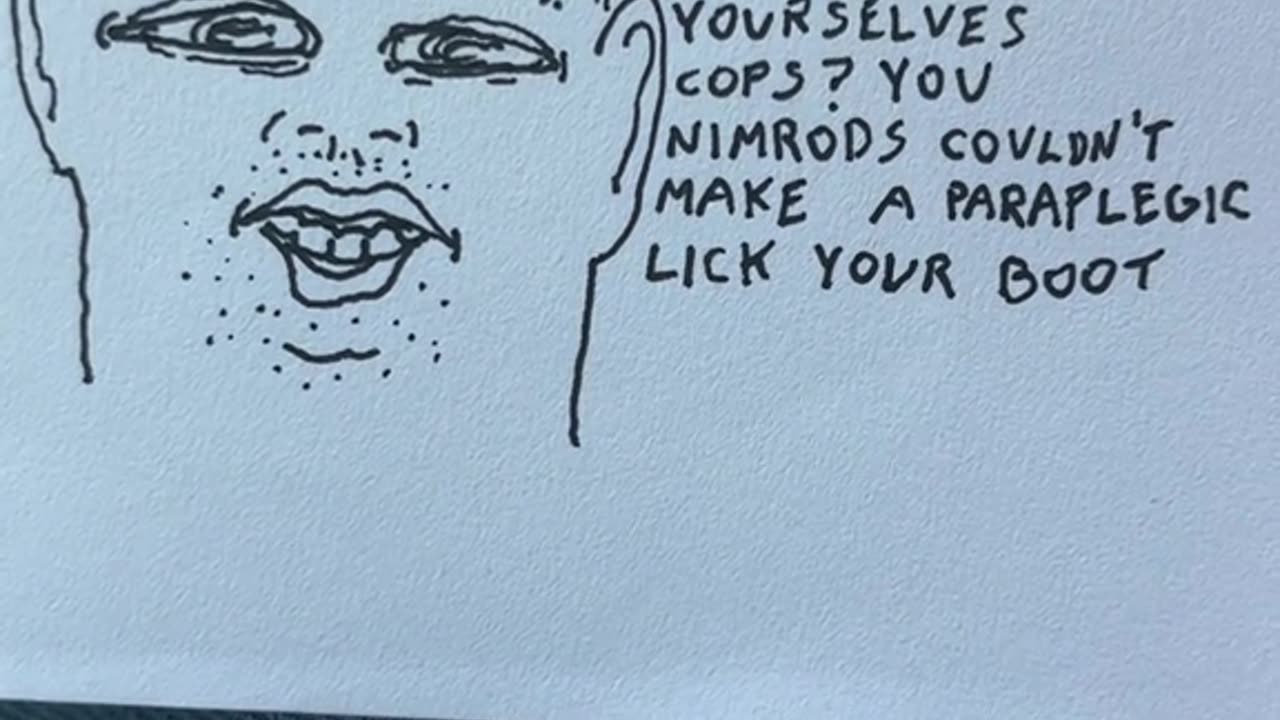 YOURSELVES
COPS? YOU
NIMRODS COULDN'T
MAKE A PARAPLEGIC
LICK YOUR BOOT